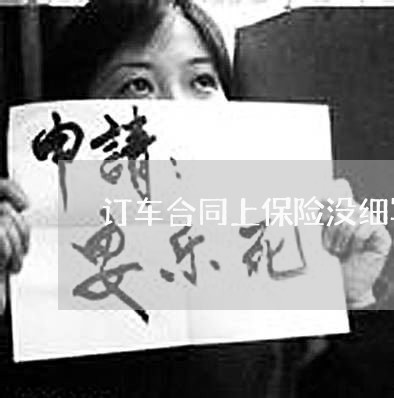 申請：
订车合同上保险没细
安乐死